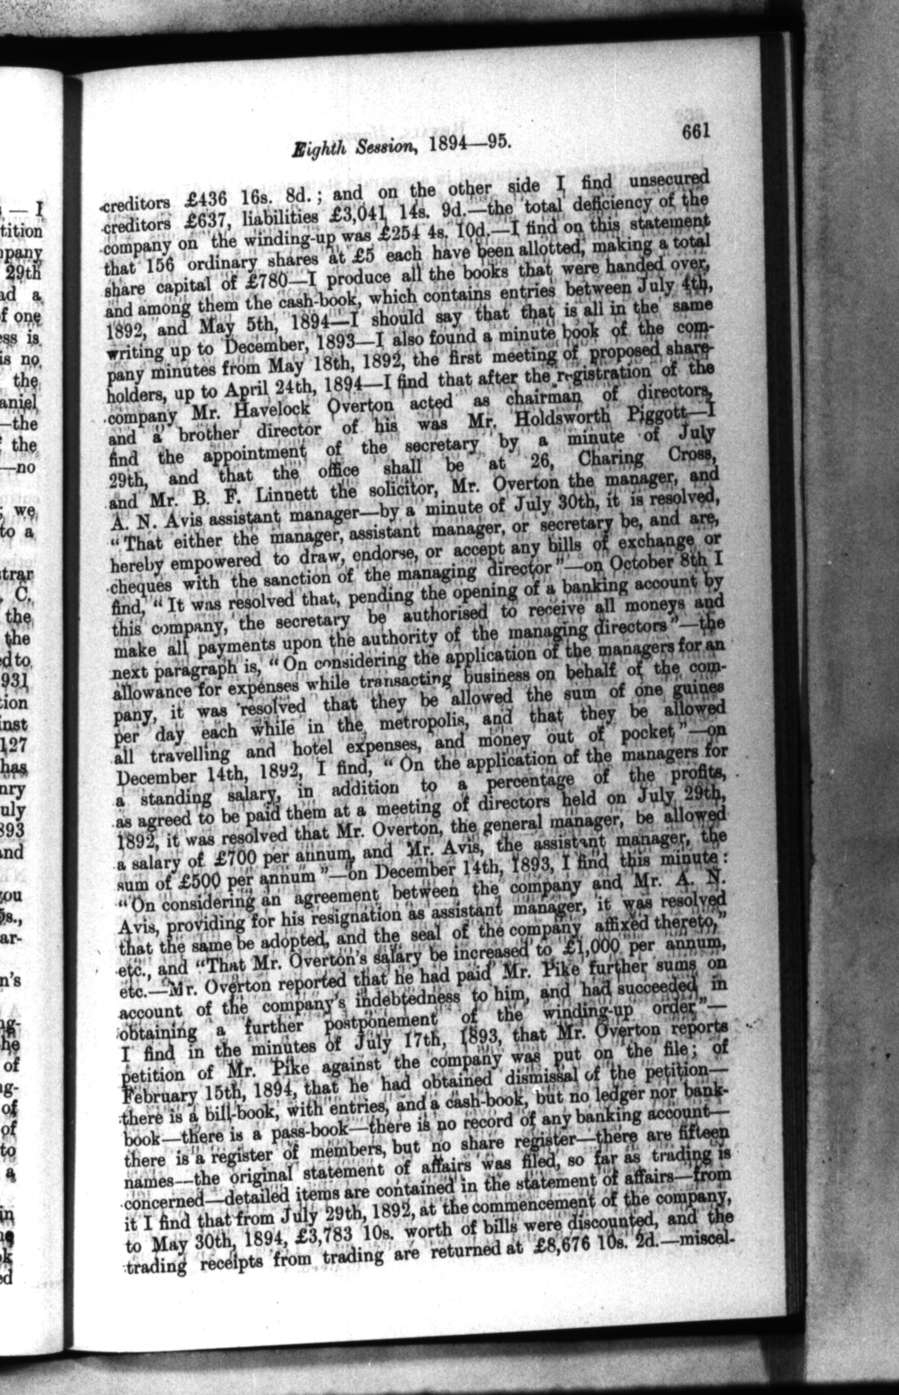 Eighth Session, 1894—95. 661
creditors £436 16s. 8d.; and on the other side I find unsecured
creditors £637, liabilities £3,041 14s. 9d.—the total deficiency of the
company on the winding-up was £254 4s. 10d.—I find on this statement
that 156 ordinary shares at £5 each have been allotted, making a total
share capital of £780—I produce all the books that were handed over,
and among them the cash-book, which contains entries between July 4th,
1892, and May 5th, 1894—I should say that that is all in the same
writing up to December, 1893—I also found a minute book of the com-
pany minutes from May 18th, 1892, the first meeting of proposed share-
holders, up to April 24th, 1894—I find that after the registration of the
company Mr. Havelock Overton acted as chairman of directors,
and a brother director of his was Mr. Holdsworth Piggott—I
find the appointment of the secretary by a minute of July
29th, and that the office shall be at 26, Charing Cross,
and Mr. B. F. Linnett the solicitor, Mr. Overton the manager, and
A. N. Avis assistant manager—by a minute of July 30th, it is resolved,
"That either the manager, assistant manager, or secretary be, and are,
hereby empowered to draw, endorse, or accept any bills of exchange or
cheques with the sanction of the managing director"—on October 8th I
find, "It was resolved that, pending the opening of a banking account by
this company, the secretary be authorised to receive all moneys and
make all payments upon the authority of the managing directors"—the
next paragraph is, "On considering the application of the managers for an
allowance for expenses while transacting business on behalf of the com-
pany, it was resolved that they be allowed the sum of one guinea
per day each while in the metropolis, and that they be allowed
all travelling and hotel expenses, and money out of pocket"—on
December 14th, 1892, I find, "On the application of the managers for
a standing salary, in addition to a percentage of the profits,
as agreed to be paid them at a meeting of directors held on July 29th,
1892, it was resolved that Mr. Overton, the general manager, be allowed
a salary of £700 per annum, and Mr. Avis, the assistant manager, the
sum of £500 per annum"—on December 14th, 1893, I find this minute:
"On considering an agreement between the company and Mr. A. N.
Avis, providing for his resignation as assistant manager, it was resolved
that the same be adopted, and the seal of the company affixed thereto,"
etc., and "That Mr. Overton's salary be increased to £1,000 per annum,
etc.—Mr. Overton reported that he had paid Mr. Pike further sums on
account of the company's indebtedness to him, and had succeeded in
obtaining a further postponement of the winding-up order"—
I find in the minutes of July 17th, 1893, that Mr. Overton reports
petition of Mr. Pike against the company was put on the file; of
February 15th, 1894, that he had obtained dismissal of the petition—
there is a bill-book, with entries, and a cash-book, but no ledger nor bank-
book—there is a pass-book—there is no record of any banking account—
there is a register of members, but no share register—there are fifteen
names—the original statement of affairs was filed, so far as trading is
concerned—detailed items are contained in the statement of affairs—from
it I find that from July 29th, 1892, at the commencement of the company,
to May 30th, 1894, £3,783 10s. worth of bills were discounted, and the
trading receipts from trading are returned at £8,676 10s. 2d.—miscel-